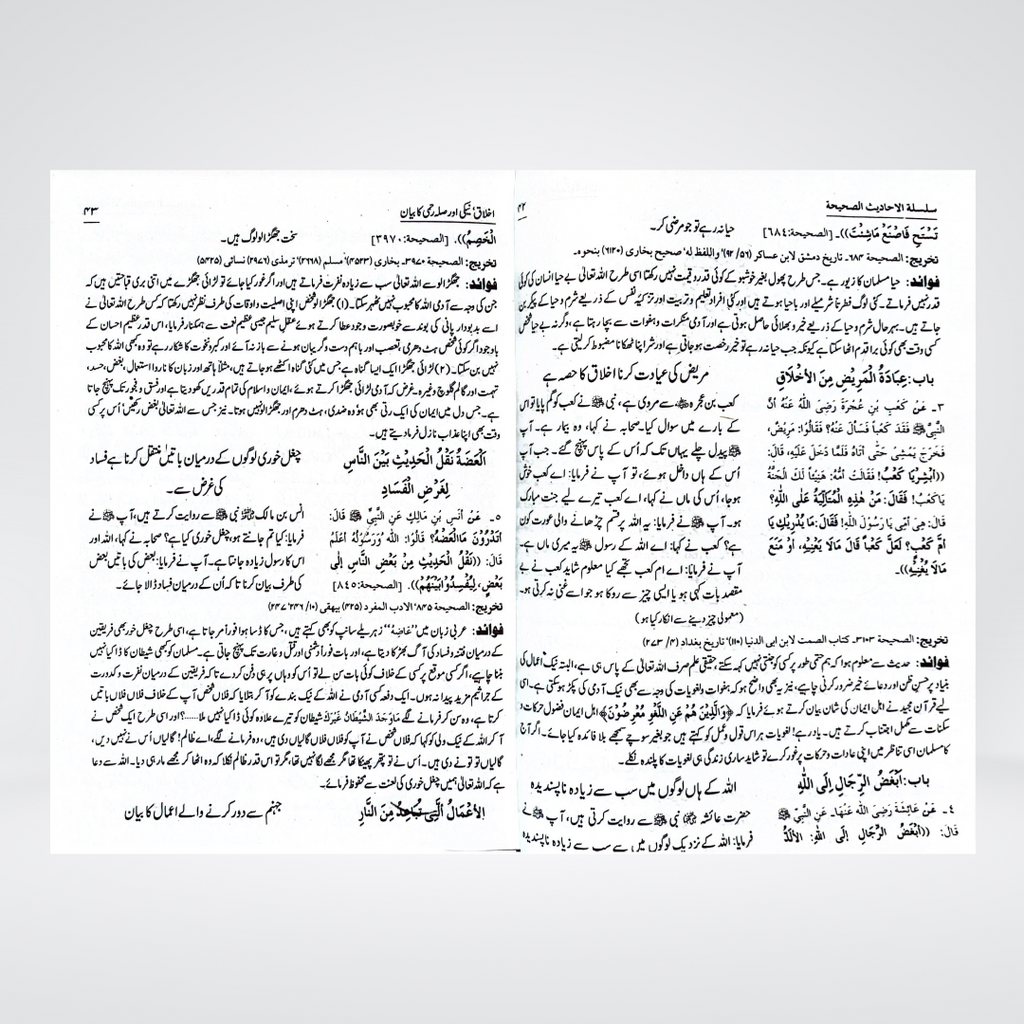 سلسلة الاحادیث الصحیحة
۴۲
تَسْتَحِ فَاصْنَعْ مَاشِئْتَ))۔ [الصحیحة:٦٨٤]
حیا نہ رہے تو جو مرضی کر۔
تخریج: الصحیحة ۶۸۴۔ تاریخ دمشق لابن عساکر (۵۶/ ۹۲) واللفظ لہ' صحیح بخاری (۶۱۲۰) بنحوہ۔
فوائد: حیا مسلمان کا زیور ہے۔ جس طرح پھول بغیر خوشبو کے کوئی قدر و قیمت نہیں رکھتا اسی طرح اللہ تعالی بے حیا انسان کی کوئی
قدر نہیں فرماتے۔ کئی لوگ فطرتا شرمیلے اور باحیا ہوتے ہیں اور کئی افراد تعلیم و تربیت اور تزکیۂ نفس کے ذریعے شرم و حیا کے پیکر بن
جاتے ہیں۔ بہرحال شرم و حیا کے ذریعے خیر و بھلائی حاصل ہوتی ہے اور آدمی منکرات و ہفوات سے بچا رہتا ہے، وگرنہ بے حیا شخص
کسی وقت بھی کوئی برا قدم اٹھا سکتا ہے کیونکہ جب حیا نہ رہے تو خیر رخصت ہو جاتی ہے اور شر اپنا ٹھکانا مضبوط کر لیتی ہے۔
باب: عِيَادَةُ الْمَرِيْضِ مِنَ الْأَخْلَاقِ
مریض کی عیادت کرنا اخلاق کا حصہ ہے
٣۔ عَنْ كَعْبِ بْنِ عُجْرَةَ رَضِيَ اللّٰهُ عَنْهُ أَنَّ
النَّبِيَّ ﷺ فَقَدَ كَعْباً فَسَأَلَ عَنْهُ؟ فَقَالُوْا: مَرِيْضٌ،
فَخَرَجَ يَمْشِيْ حَتّٰى أَتَاهُ فَلَمَّا دَخَلَ عَلَيْهِ، قَالَ:
((أَبْشِرْ يَا كَعْبُ! فَقَالَتْ أُمُّهُ: هَنِيْئاً لَكَ الْجَنَّةُ
يَا كَعْبُ! فَقَالَ: مَنْ هٰذِهِ الْمُتَأَلِّيَةُ عَلَى اللّٰهِ؟
قَالَ: هِيَ أُمِّيْ يَا رَسُوْلَ اللّٰهِ! فَقَالَ: مَا يُدْرِيْكِ يَا
أُمَّ كَعْبٍ؟ لَعَلَّ كَعْباً قَالَ مَالَا يَعْنِيْهِ، أَوْ مَنَعَ
مَالَا يُغْنِيْهِ))۔
کعب بن عجرہ سے مروی ہے، نبی ﷺ نے کعب کو گم پایا تو اس
کے بارے میں سوال کیا۔ صحابہ نے کہا، وہ بیمار ہے۔ آپ
ﷺ پیدل چلے یہاں تک کہ اُس کے پاس پہنچ گئے۔ جب آپ
اُس کے ہاں داخل ہوئے، تو آپ نے فرمایا: اے کعب خوش
ہوجا، اُس کی ماں نے کہا، اے کعب تیرے لیے جنت مبارک
ہو۔ آپ ﷺ نے فرمایا: یہ اللہ پر قسم چڑھانے والی عورت کون
ہے؟ کعب نے کہا: اے اللہ کے رسول ﷺ یہ میری ماں ہے۔
آپ نے فرمایا: اے ام کعب تجھے کیا معلوم شاید کعب نے بے
مقصد بات کہی ہو یا ایسی چیز سے روکا ہو جو اسے غنی نہ کرتی ہو۔
(معمولی چیز دینے سے انکار کیا ہو)
تخریج: الصحیحة ۳۱۰۳۔ کتاب الصمت لابن ابی الدنیا (۱۱۰)' تاریخ بغداد (۴/ ۲۷۳)
فوائد: حدیث سے معلوم ہوا کہ ہم حتمی طور پر کسی کو جنتی نہیں کہہ سکتے حقیقی علم صرف اللہ تعالی کے پاس ہی ہے، البتہ نیک اعمال کی
بنیاد پر حسنِ ظن اور دعائے خیر ضرور کرنی چاہیے، نیز یہ بھی واضح ہوا کہ ہفوات و لغویات کی وجہ سے بھی نیک آدمی کی پکڑ ہوسکتی ہے۔ اسی
لیے قرآن مجید نے اہل ایمان کی شان بیان کرتے ہوئے فرمایا کہ ﴿وَالَّذِيْنَ هُمْ عَنِ اللَّغْوِ مُعْرِضُوْنَ﴾ اہل ایمان فضول حرکات و
سکنات سے مکمل اجتناب کرتے ہیں۔ یاد رہے! لغویات ہر اس قول و عمل کو کہتے ہیں جو بغیر سوچے سمجھے بلا فائدہ کیا جائے۔ اگر آج
کا مسلمان اسی تناظر میں اپنی عادات و حرکات پر غور کرے تو شاید ساری زندگی ہی لغویات کا پلندہ نکلے۔
باب: أَبْغَضُ الرِّجَالِ إِلَى اللّٰهِ
اللہ کے ہاں لوگوں میں سب سے زیادہ ناپسندیدہ
٤۔ عَنْ عَائِشَةَ رَضِيَ اللّٰهُ عَنْهَا۔ عَنِ النَّبِيِّ ﷺ
قَالَ: ((أَبْغَضُ الرِّجَالِ إِلَى اللّٰهِ: الْأَلَدُّ
حضرت عائشہ نبی ﷺ سے روایت کرتی ہیں، آپ ﷺ نے
فرمایا: اللہ کے نزدیک لوگوں میں سے سب سے زیادہ ناپسندیدہ
اخلاق' نیکی اور صلہ رحمی کا بیان
۴۳
الْخَصِمُ))۔ [الصحیحة: ٣٩٧٠]
سخت جھگڑالو لوگ ہیں۔
تخریج: الصحیحة ۳۹۷۰۔ بخاری (۴۵۲۳)' مسلم (۲۶۶۸)' ترمذی (۲۹۷۶)' نسائی (۵۴۲۵)
فوائد: جھگڑالو سے اللہ تعالی سب سے زیادہ نفرت فرماتے ہیں اور اگر غور کیا جائے تو لڑائی جھگڑے میں اتنی بری قباحتیں ہیں کہ
جن کی وجہ سے آدمی اللہ کا محبوب نہیں ٹھہر سکتا۔ (۱) جھگڑالو شخص اپنی اصلیت و اوقات کی طرف نظر نہیں رکھتا کہ کس طرح اللہ تعالی نے
اسے بدبودار پانی کی بوند سے خوبصورت وجود عطا کرتے ہوئے عقلِ سلیم جیسی عظیم نعمت سے ہمکنار فرمایا، اس قدر عظیم احسان کے
باوجود اگر کوئی شخص ہٹ دھرمی، تعصب اور باہم دست و گریبان ہونے سے باز نہ آئے اور کبر و نخوت کا شکار رہے تو وہ کبھی اللہ کا محبوب
نہیں بن سکتا۔ (۲) لڑائی جھگڑا ایک ایسا گناہ ہے جس میں کئی گناہ اکٹھے ہو جاتے ہیں، مثلاً ہاتھ اور زبان کا ناروا استعمال، بغض، حسد،
تہمت اور گالم گلوچ وغیرہ۔ غرض کہ آدمی لڑائی جھگڑا کرتے ہوئے، ایمان و اسلام کی تمام قدریں کھو دیتا ہے اور فسق و فجور تک پہنچ جاتا
ہے۔ جس دل میں ایمان کی ایک رتی بھی ہو وہ ضدی، ہٹ دھرم اور جھگڑالو نہیں ہوتا۔ نیز جس سے اللہ تعالی بغض رکھیں' اُس پر کسی
وقت بھی اپنا عذاب نازل فرما دیتے ہیں۔
اَلْعَضَةُ نَقْلُ الْحَدِيْثِ بَيْنَ النَّاسِ
لِغَرْضِ الْفَسَادِ
چغل خوری لوگوں کے درمیان باتیں منتقل کرنا ہے فساد
کی غرض سے۔
٥۔ عَنْ أَنَسِ بْنِ مَالِكٍ عَنِ النَّبِيِّ ﷺ قَالَ:
أَتَدْرُوْنَ مَا الْعَضْهُ؟ قَالُوْا: اللّٰهُ وَرَسُوْلُهُ أَعْلَمُ
قَالَ: ((نَقْلُ الْحَدِيْثِ مِنْ بَعْضِ النَّاسِ إِلَى
بَعْضٍ، لِيُفْسِدُوْا بَيْنَهُمْ))۔ [الصحیحة:٨٤٥]
انس بن مالک نبی ﷺ سے روایت کرتے ہیں، آپ ﷺ نے
فرمایا: کیا تم جانتے ہو، چغل خوری کیا ہے؟ صحابہ نے کہا، اللہ اور
اس کا رسول زیادہ جانتا ہے۔ آپ نے فرمایا: بعض کی باتیں بعض
کی طرف بیان کرنا تا کہ اُن کے درمیان فساد ڈالا جائے۔
تخریج: الصحیحة ۸۴۵' الادب المفرد (۴۲۵)' بیہقی (۱۰/ ۲۴۶' ۲۴۷)
فوائد: عربی زبان میں ''عَاضِهُ'' زہریلے سانپ کو بھی کہتے ہیں، جس کا ڈسا ہوا فوراً مر جاتا ہے، اسی طرح چغل خور بھی فریقین
کے درمیان فتنہ و فساد کی آگ بھڑکا دیتا ہے، اور بات فوراً دشمنی اور قتل و غارت تک پہنچ جاتی ہے۔ مسلمان کو کبھی شیطان کا ڈاکیا نہیں
بننا چاہیے، اگر کسی موقع پر کسی کے خلاف کوئی بات سن لے تو اُس کو وہاں پر ہی دفن کر دے تاکہ فریقین کے درمیان نفرت و کدورت
کے جراثیم مزید پیدا نہ ہوں۔ ایک دفعہ کسی آدمی نے اللہ کے نیک بندے کو آ کر بتلایا کہ فلاں شخص آپ کے خلاف فلاں فلاں باتیں
کرتا ہے، وہ سن کر فرمانے لگے مَاوَجَدَ الشَّيْطَانُ غَيْرَكَ شیطان کو تیرے علاوہ کوئی ڈاکیا نہیں ملا......؟ اور اسی طرح ایک شخص نے
آ کر اللہ کے نیک ولی کو کہا کہ فلاں شخص نے آپ کو فلاں فلاں گالیاں دی ہیں، وہ فرمانے لگے، اے ظالم! گالیاں اُس نے نہیں دیں،
گالیاں تو تو نے دی ہیں۔ اُس نے تو پتھر پھینکا تھا مگر مجھے لگا نہیں تھا، مگر تو اس قدر ظالم نکلا کہ وہ اٹھا کر مجھے مار ہی دیا۔ اللہ سے دعا
ہے کہ اللہ تعالی ہمیں چغل خوری کی لعنت سے محفوظ فرمائے۔
اَلْأَعْمَالُ الَّتِيْ تُبَاعِدُ مِنَ النَّارِ
جہنم سے دور کرنے والے اعمال کا بیان